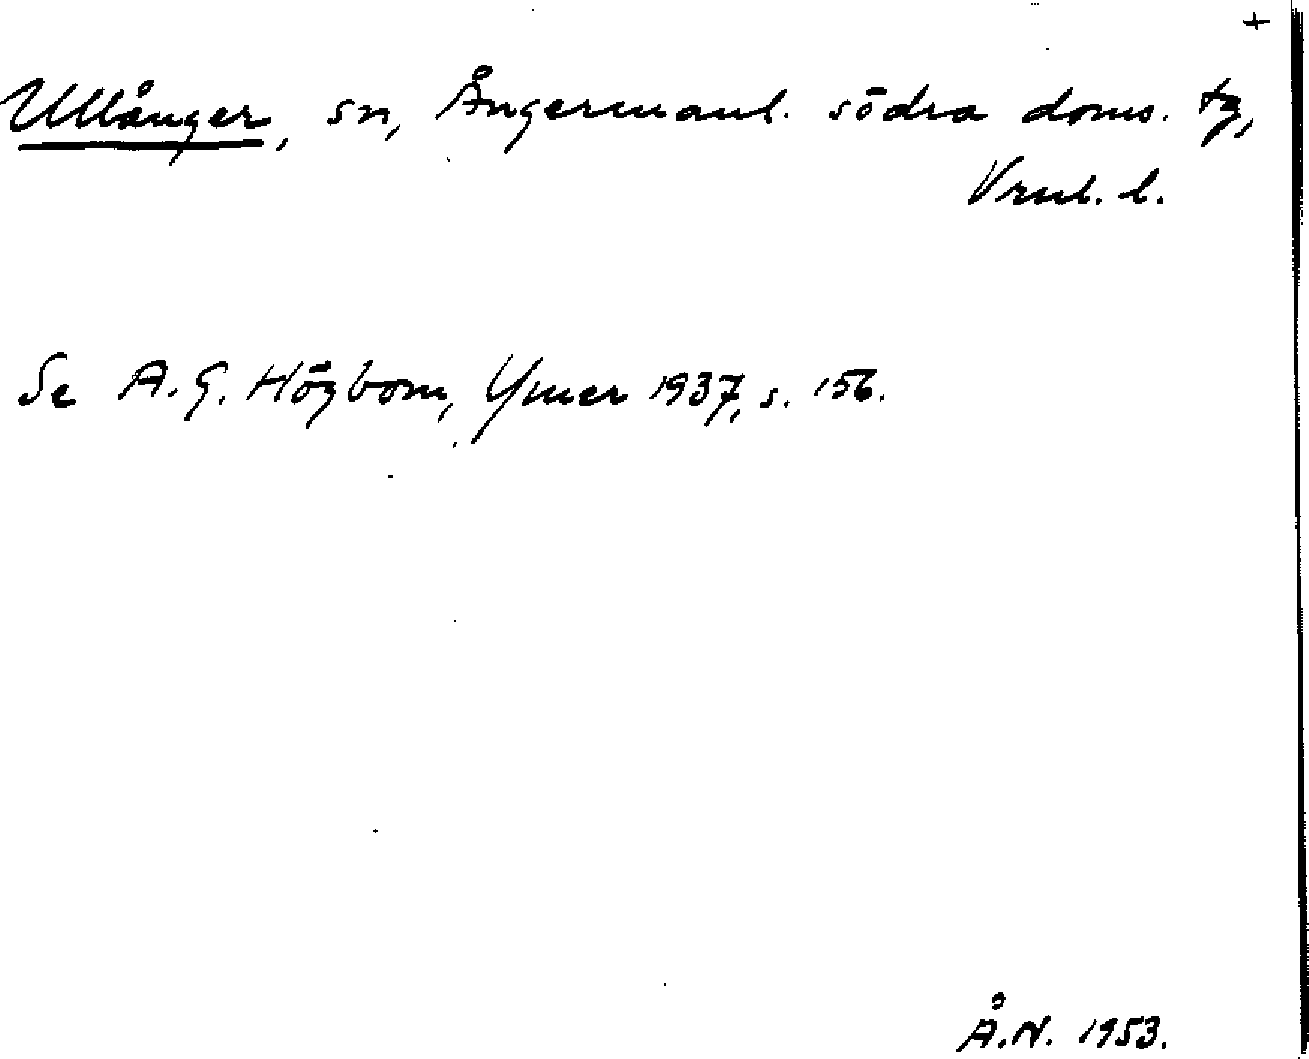 +
Ullånger, sn, Ångermanl. södra doms. tg,
Vrnl. l.
Se A. G. Högbom, Ymer 1937, s. 156.
Å.N. 1953.